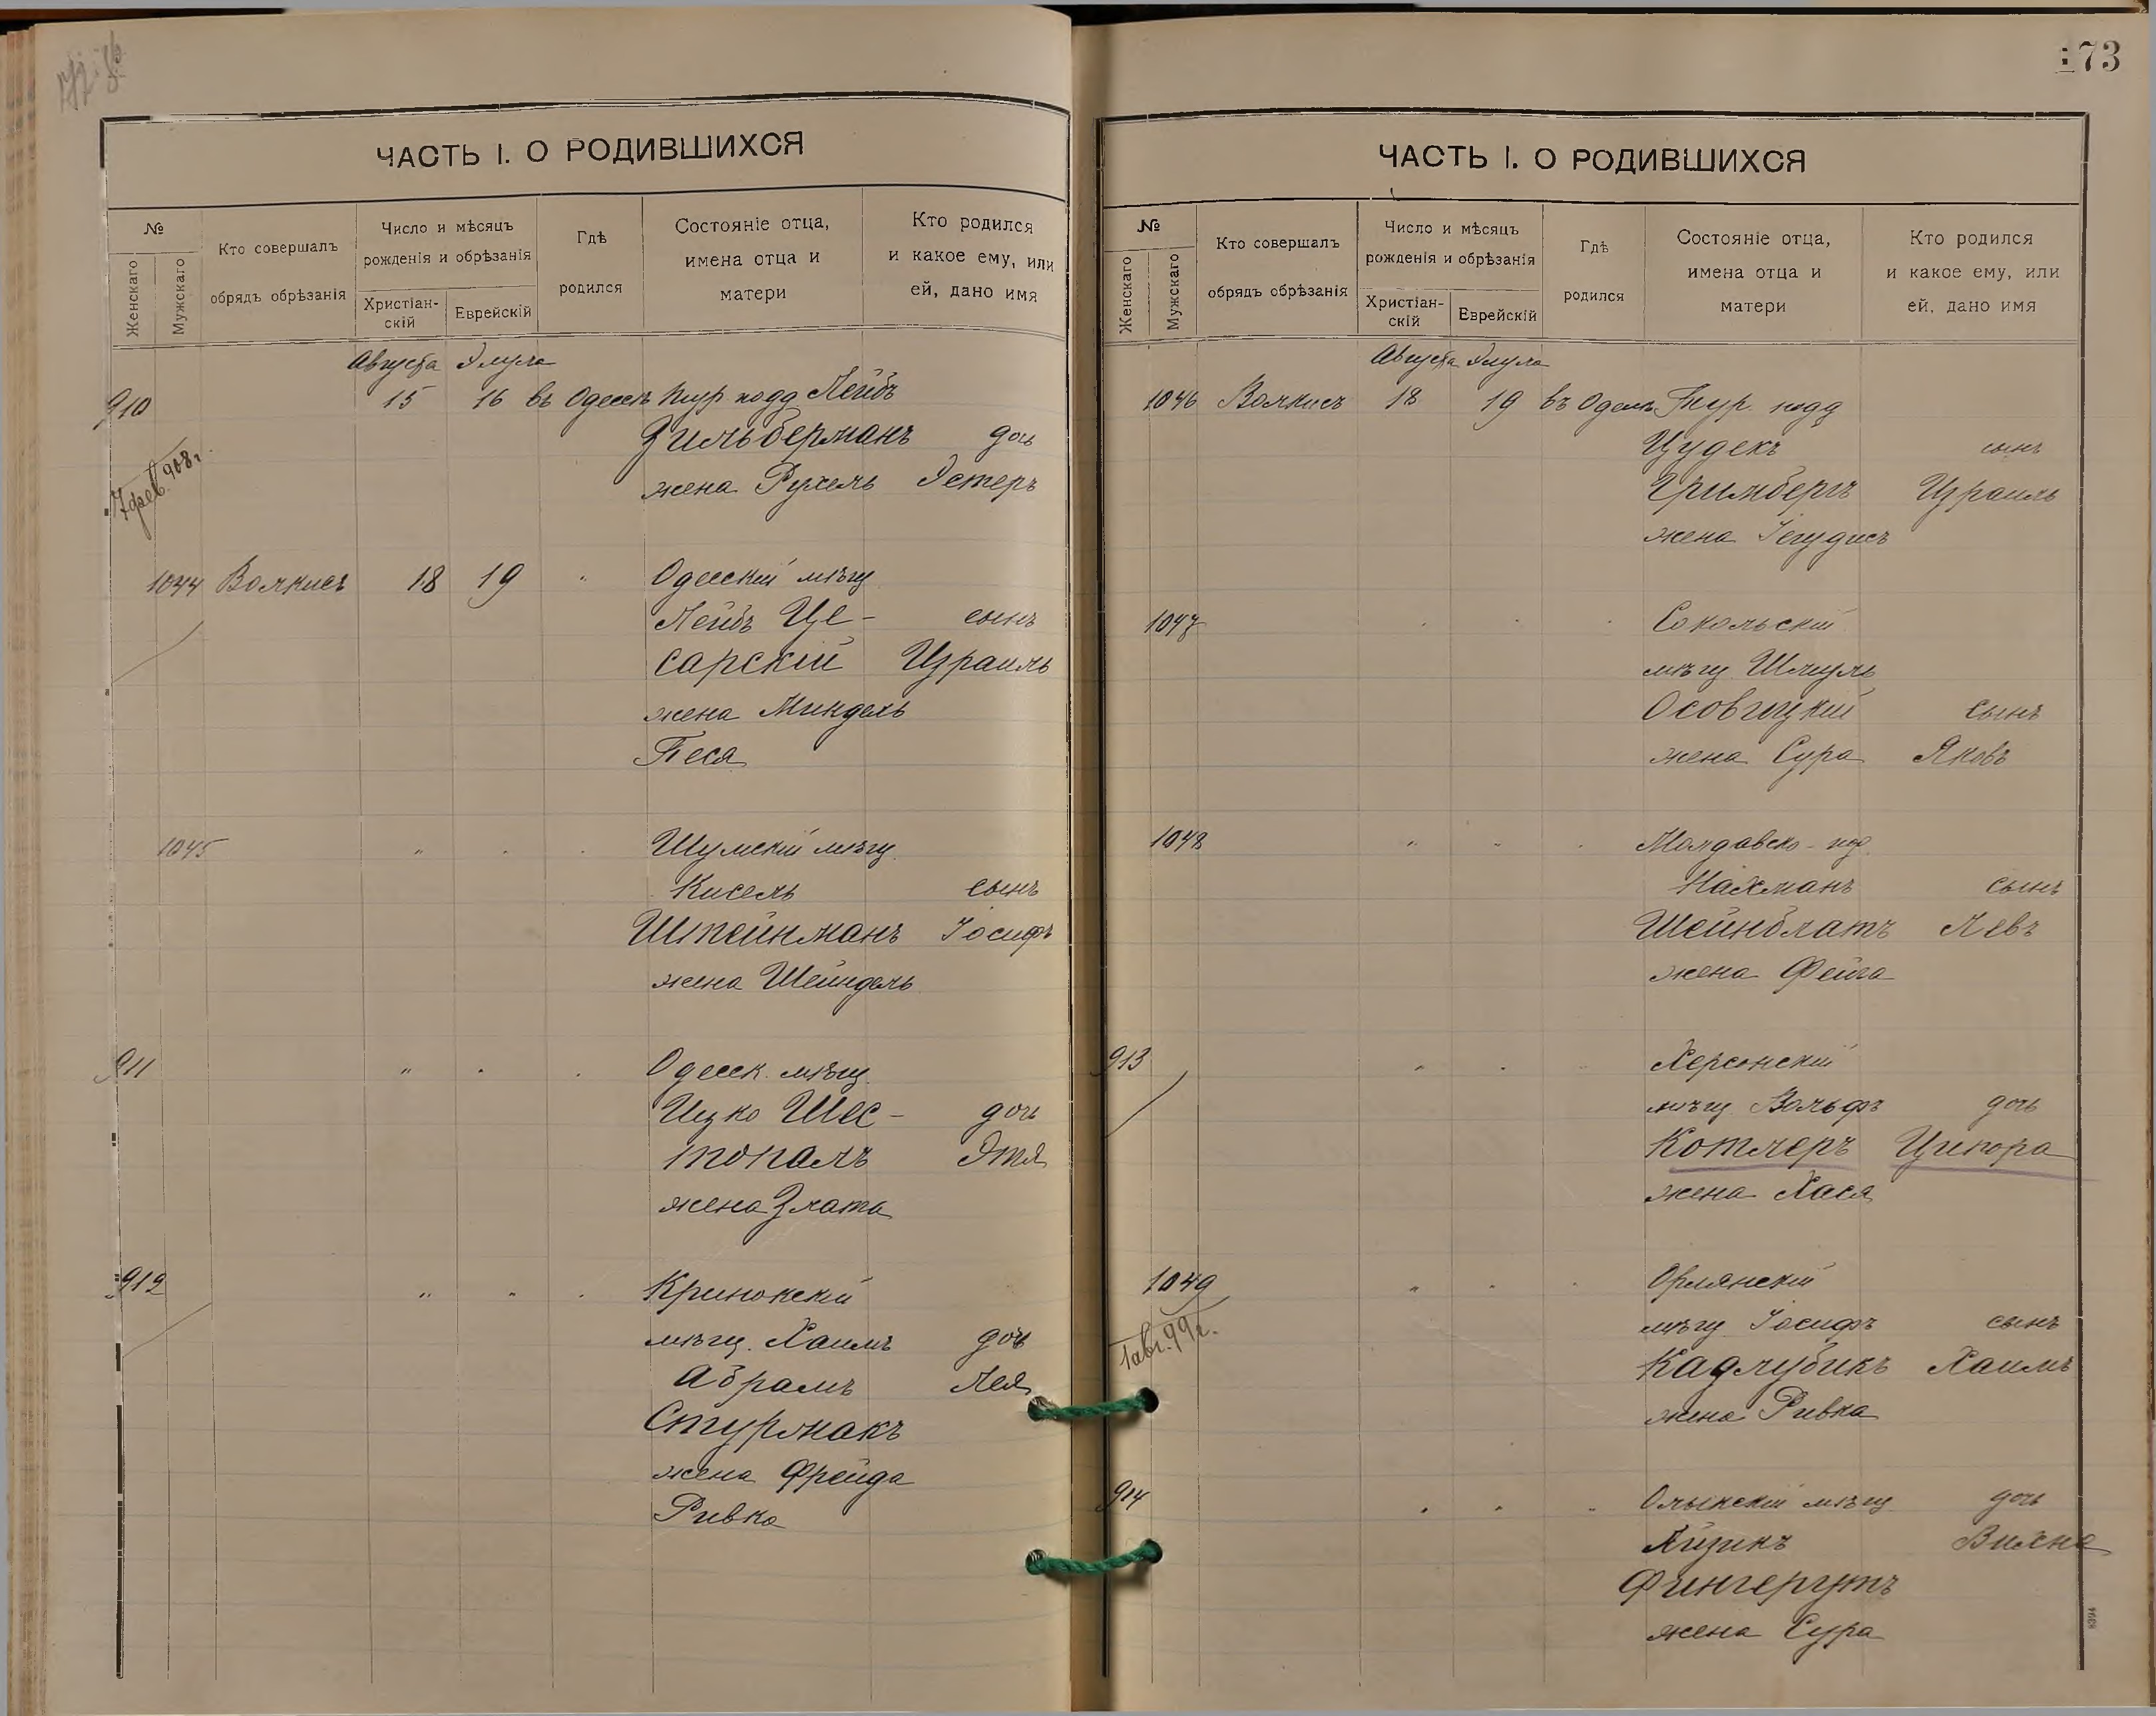 ЧАСТЬ I. О РОДИВШИХСЯ
№
Женскаго
Мужскаго
Кто совершалъ
обрядъ обрѣзанія
Число и мѣсяцъ
рожденія и обрѣзанія
Христіан-
скій
Еврейскій
Гдѣ
родился
Состояніе отца,
имена отца и
матери
Кто родился
и какое ему, или
ей, дано имя
Августа Элула
910 15 16 въ Одессѣ тур подд Лейбъ
Зильберманъ дочь
жена Рухель Эстеръ
7 фев. 908 г.
1044 Волкисъ 18 19 " Одесскій мѣщ
Лейбъ Це- сынъ
сарскій Израиль
жена Миндель
Песя
1045 " " " Шумскій мѣщ
Кисель сынъ
Штейнманъ Іосифъ
жена Шейндель
911 " " " Одесск. мѣщ.
Ицко Шес- дочь
топалъ Этя
жена Злата
912 " " " Кринокскій
мѣщ. Хаимъ дочь
Абрамъ Лея
Стурмакъ
жена Фрейда
Ривка
173
ЧАСТЬ I. О РОДИВШИХСЯ
№
Женскаго
Мужскаго
Кто совершалъ
обрядъ обрѣзанія
Число и мѣсяцъ
рожденія и обрѣзанія
Христіан-
скій
Еврейскій
Гдѣ
родился
Состояніе отца,
имена отца и
матери
Кто родился
и какое ему, или
ей, дано имя
Августа Элула
1046 Волкисъ 18 19 въ Одессѣ Тур. подд
Цудекъ сынъ
Гринбергъ Израиль
жена Іегудисъ
1047 " " " Сокольскій
мѣщ Шмуль
Осовицкій сынъ
жена Сура Яковъ
1048 " " " Молдавско-под.
Нахманъ сынъ
Шейнблатъ Левъ
жена Фейга
913 " " " Херсонскій
мѣщ. Вольфъ дочь
Котлеръ Ципора
жена Хася
1049 " " " Орлянскій
мѣщ Іосифъ сынъ
1 авг. 99 г.
Кадлубикъ Хаимъ
жена Ривка
914 " " " Олыкскій мѣщ дочь
Айзикъ Вихна
Фингерутъ
жена Сура